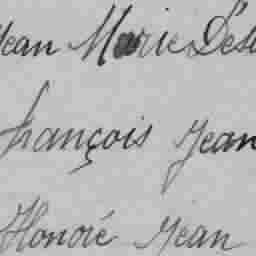 Jean Marie Dési
françois Jean
Honoré Jean